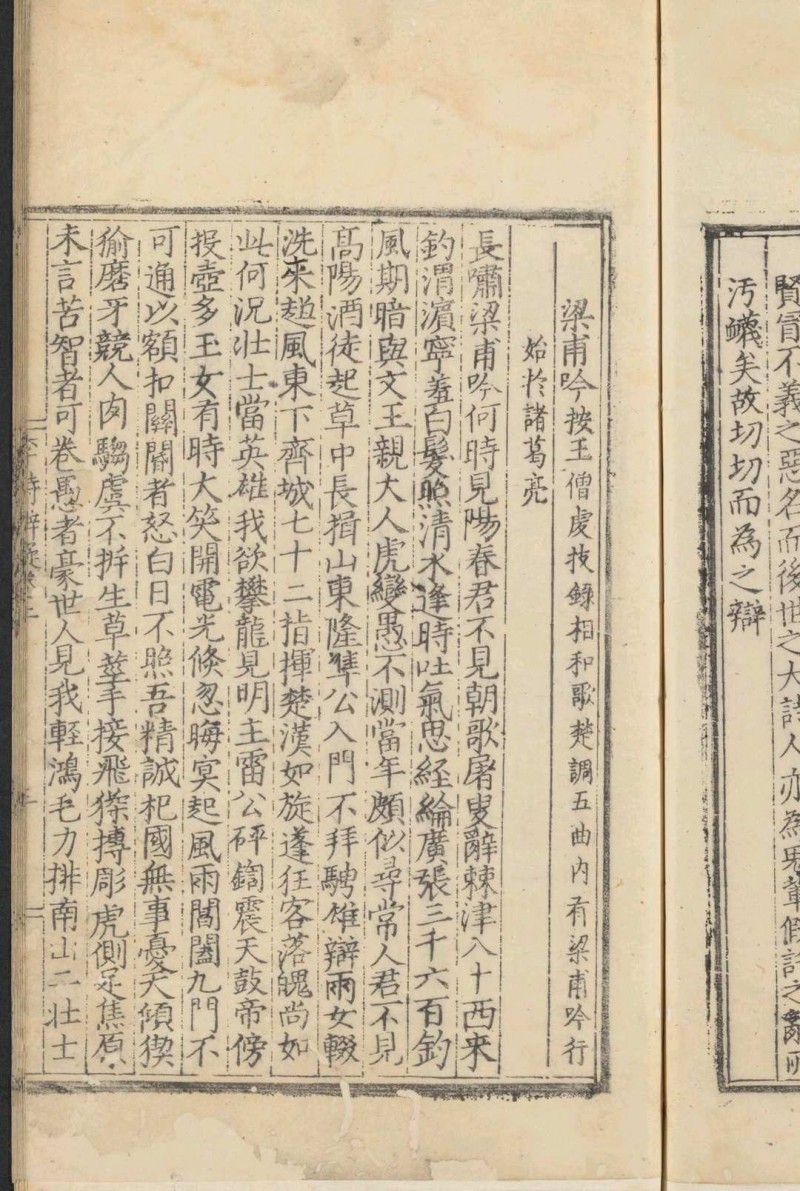 賢實不義之惡名而後世之大詩人亦為兇輩假託之辭所
汚衊矣故切切而為之辯
梁甫吟按王僧虔技錄相和歌楚調五曲內有梁甫吟行
始於諸葛亮
長嘯梁甫吟何時見陽春君不見朝歌屠叟辭棘津八十西来
釣渭濵寧羞白髮照清水逢時吐氣思経綸廣張三千六百釣
風期暗與文王親大人虎變愚不測當年頗似尋常人君不見
髙陽酒徒起草中長揖山東隆準公入門不拜騁雄辯兩女輟
洗來趍風東下齊城七十二指揮楚漢如旋蓬狂客落魄尚如
此何況壮士當英雄我欲攀龍見明主雷公砰鍧震天鼓帝傍
投壺多玉女有時大笑開電光倐忽晦㝠起風雨閶闔九門不
可通以額扣關閽者怒白日不照吾精誠杞國無事憂天傾猰
㺄磨牙競人肉騶虞不折生草莖手接飛猱搏彫虎側足焦原
未言苦智者可卷愚者豪世人見我軽鴻毛力排南山二壮士